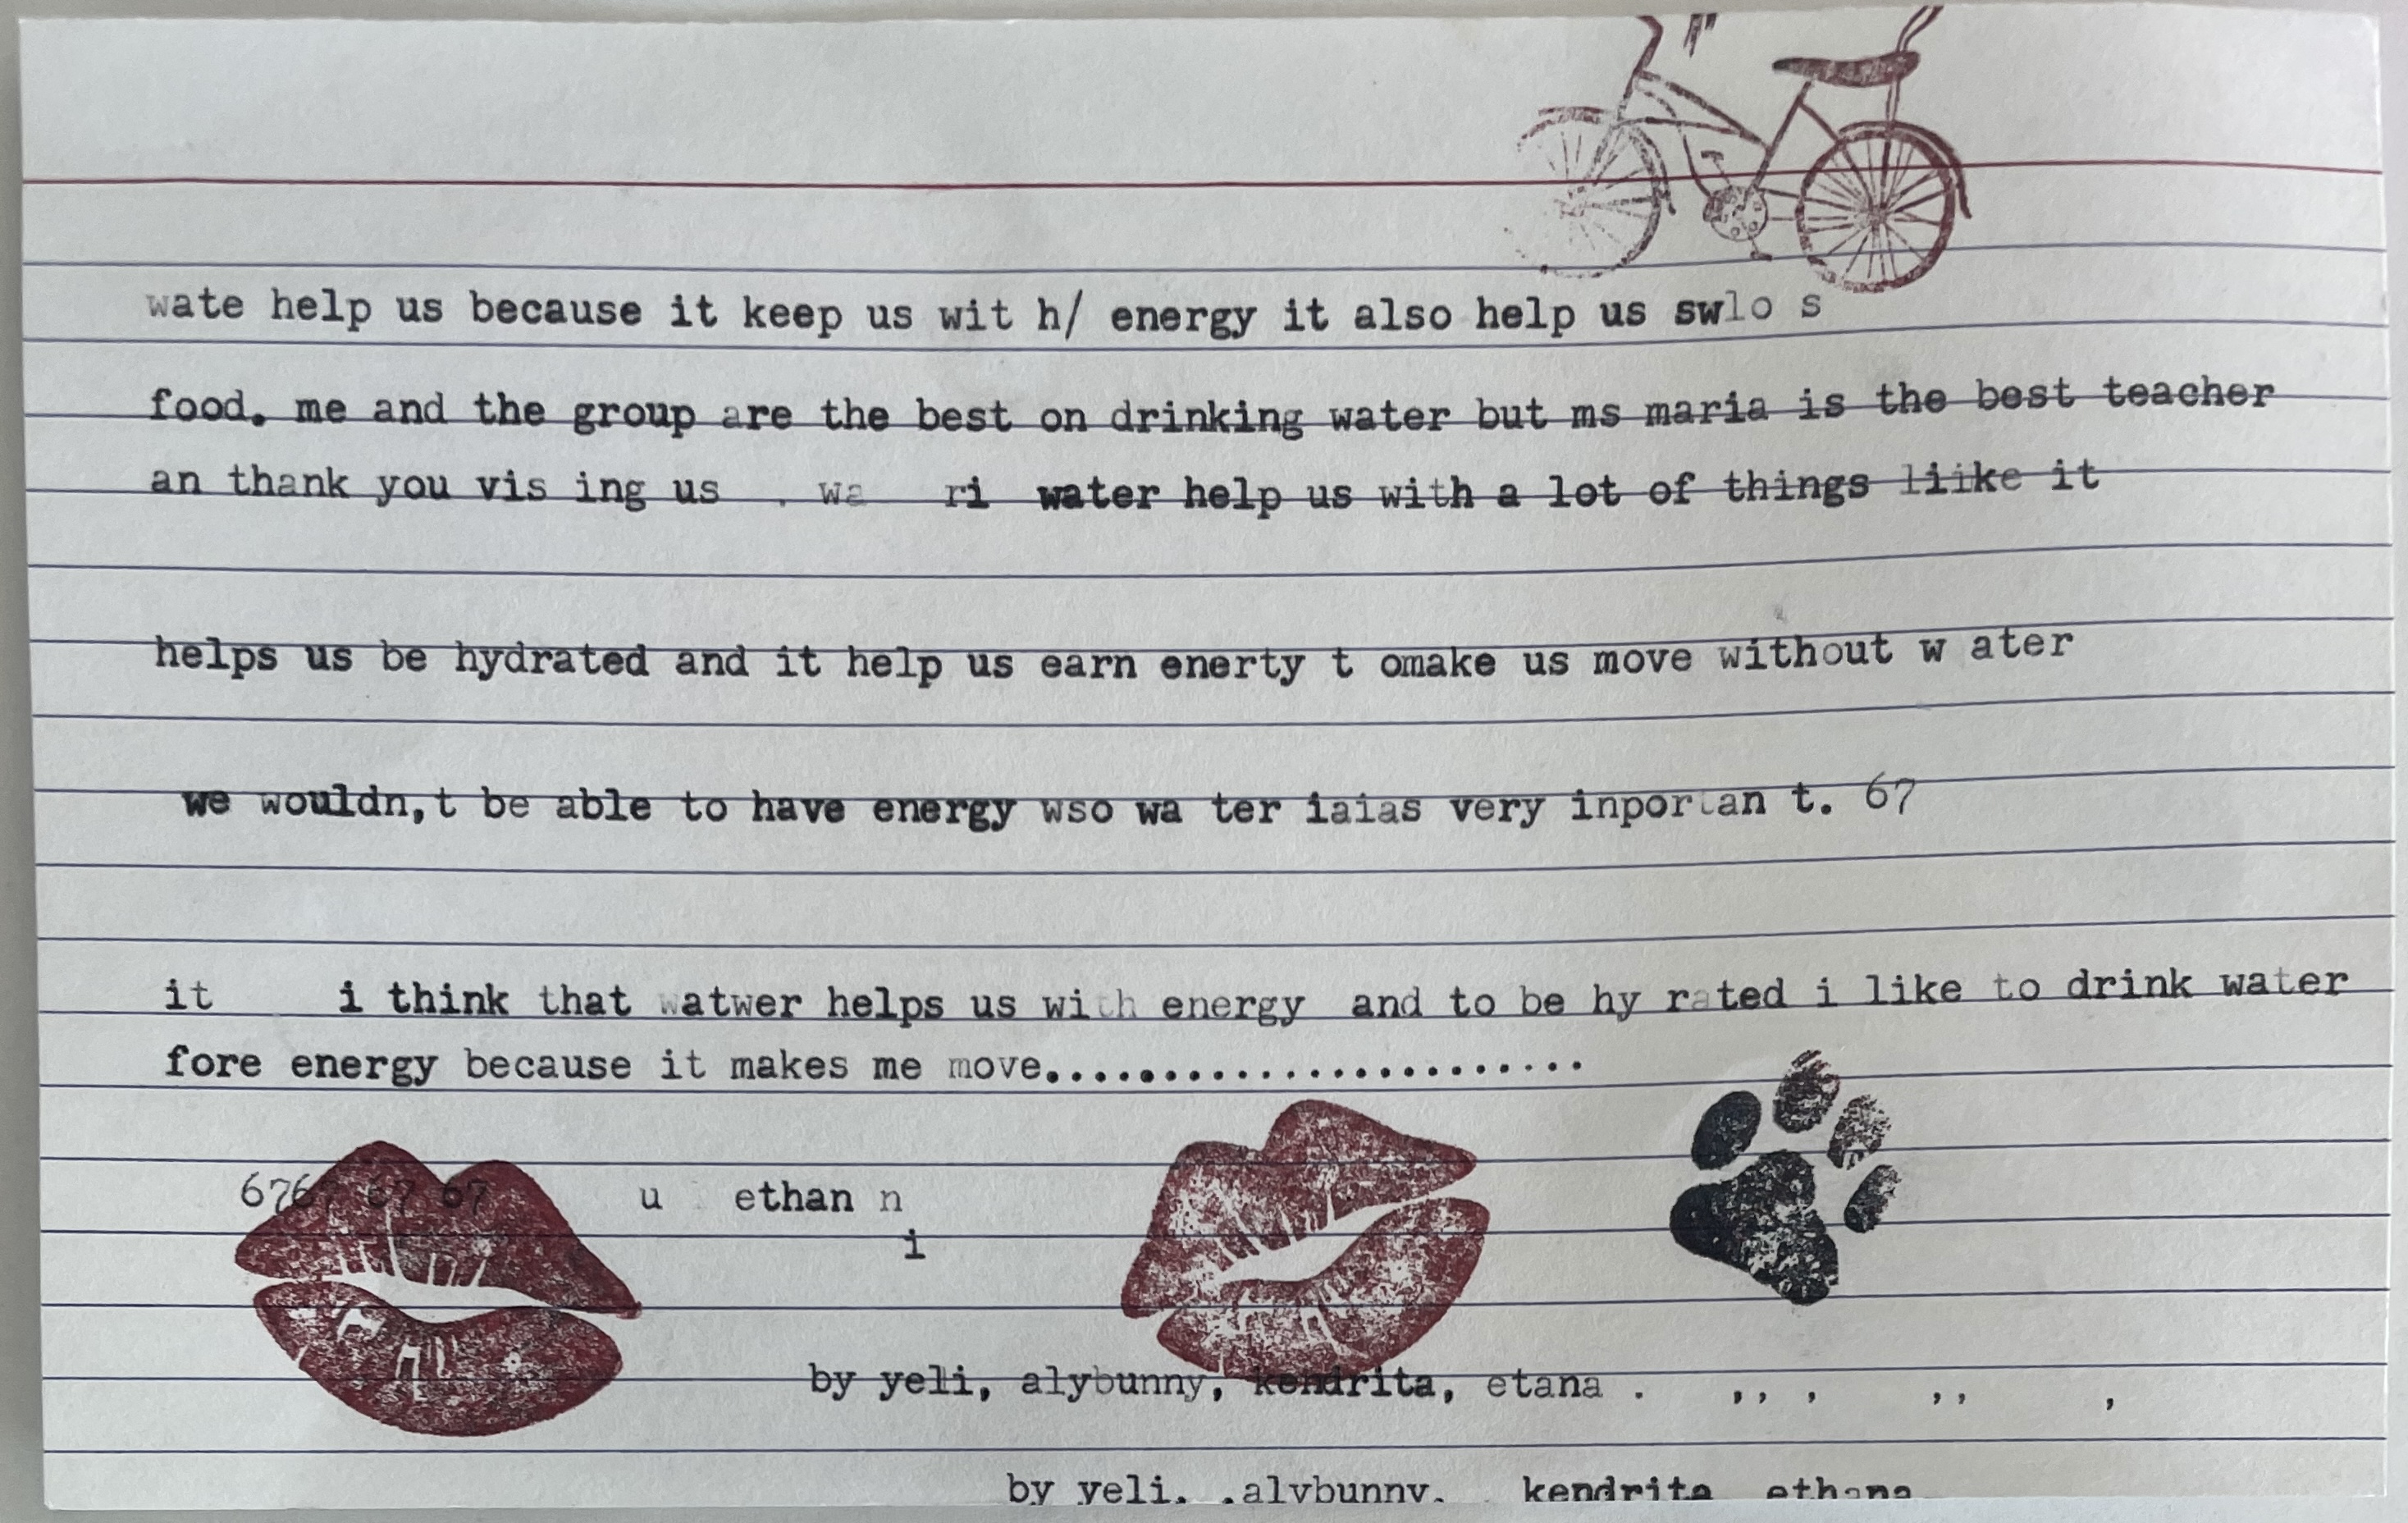 wate help us because it keep us wit h/ energy it also help us swlo s
food. me and the group are the best on drinking water but ms maria is the best teacher
an thank you vis ing us . wa ri water help us with a lot of things liike it
helps us be hydrated and it help us earn enerty t omake us move without w ater
we wouldn,t be able to have energy wso wa ter iaias very inportan t. 67
it i think that watwer helps us with energy and to be hy rated i like to drink water
fore energy because it makes me move.......................
6767 67 67 u ethan n
i
by yeli, alybunny, kendrita, etana . ,, , ,, ,
by yeli. .alybunny. kendrita ethana